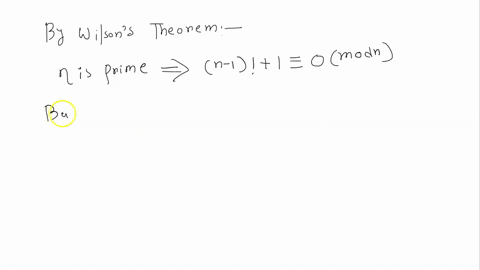 By Wilson's Theorem:—
n is prime ⟹ (n-1)! + 1 ≡ 0 (mod n)
Bu